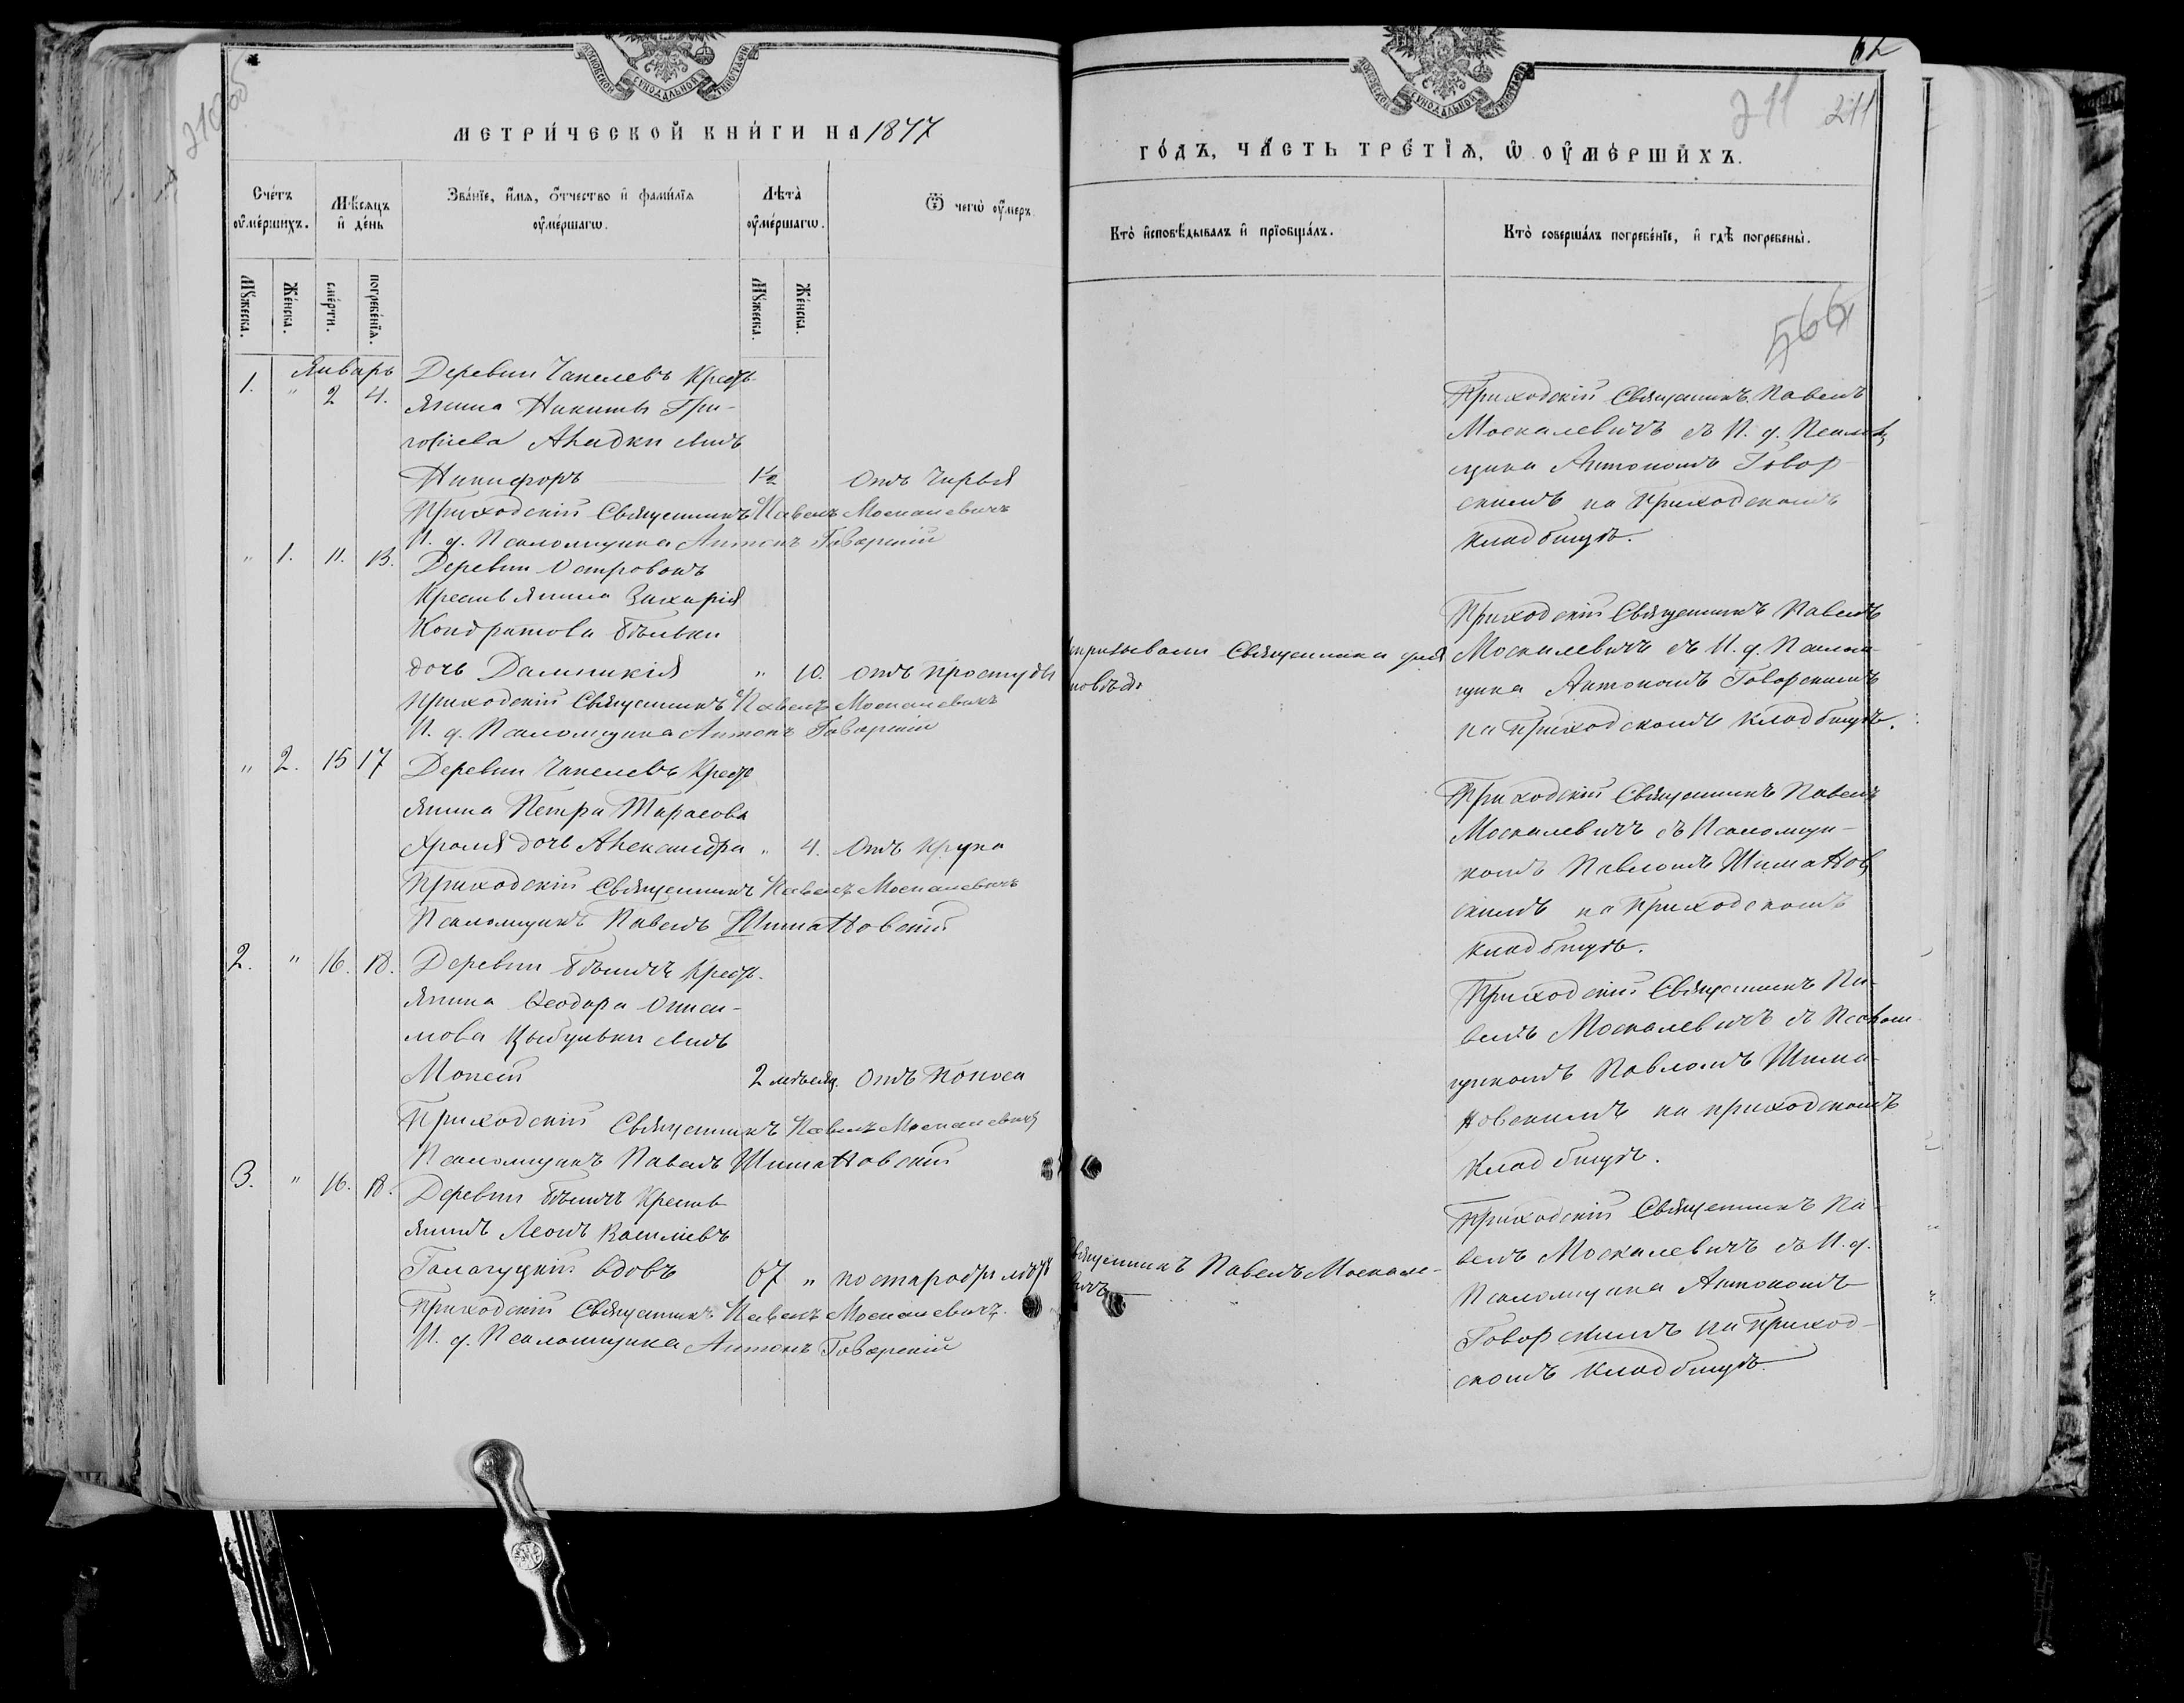 МЕТРИ́ЧЕСКОЙ КНИ́ГИ НА 1877
Сче́тъ оу҆ме́ршихъ.
Мѣ́сяцъ и҆ де́нь
Зва́нїе, и҆́мѧ, ѻ҆́тчество и҆ фами́лїѧ оу҆ме́ршагѡ.
Лѣта̀ оу҆ме́ршагѡ.
Ѿ чегѡ̀ оу҆́меръ.
Мꙋ́жеска.
Же́нска.
сме́рти.
погребе́нїѧ.
Мꙋ́жеска.
Же́нска.
Январь
1. " 2 4. Деревни Чапелевъ Кресть-
янина Никиты Гри-
горіева сынъ
Никифоръ 1½ Отъ Чирья
Приходскій Священникъ Павелъ Москалевичъ
И. д. Псаломщика Антонъ Говорскій
" 1. 11. 13. Деревни Островокъ
Крестьянина Захарія
Кондратова Бѣльки
дочь Домникія " 10. Отъ простуды
Приходскій Священникъ Павелъ Москалевичъ
И. д. Псаломщика Антонъ Говорскій
" 2. 15 17 Деревни Чапелевъ Кресть
янина Петра Тарасова
Хроля дочь Александра " 4. Отъ Крупа
Приходскій Священникъ Павелъ Москалевичъ
Псаломщикъ Павелъ Шимановскій
2. " 16. 18. Деревни Бѣличъ Кресть-
янина Ѳеодора Ониси-
мова Цыбульки сынъ
Моисей 2 мѣсяц. Отъ Поноса
Приходскій Священникъ Павелъ Москалевичъ
Псаломщикъ Павелъ Шимановскій
3. " 16. 18. Деревни Бѣличъ Кресть
янинъ Леонъ Василіевъ
Галагуцкій вдовъ 67 " по старости лѣтъ
Приходскій Священникъ Павелъ Москалевичъ.
И. д. Псаломщика Антонъ Говорскій
62
211 211
ГО́ДЪ, ЧА́СТЬ ТРЕ́ТЇѦ, Ѡ҆ ОУ҆МЕ́РШИХЪ.
Кто̀ и҆сповѣ́дывалъ и҆ прїобща́лъ.
Кто̀ соверша́лъ погребе́нїе, и҆ гдѣ̀ погребены̀.
566
Приходскій Священникъ Павелъ
Москалевичъ съ И. д. Псалом
щика Антономъ Говор
скимъ на Приходскомъ
кладбищѣ.
призывали Священника для
повѣди
Приходскій Священникъ Павелъ
Москалевичъ съ И. д. Псалом-
щика Антономъ Говорскимъ
на приходскомъ кладбищѣ.
Приходскій Священникъ Павелъ
Москалевичъ съ Псаломщи-
комъ Павломъ Шиманов
скимъ на Приходскомъ
кладбищѣ.
Приходскій Священникъ Па-
велъ Москалевичъ съ Псалом-
щикомъ Павломъ Шима-
новскимъ на приходскомъ
Кладбищѣ.
Священникъ Павелъ Москале-
вичъ
Приходскій Священникъ Па-
велъ Москалевичъ съ И. д.
Псаломщика Антономъ
Говорскимъ на приход-
скомъ кладбищѣ.